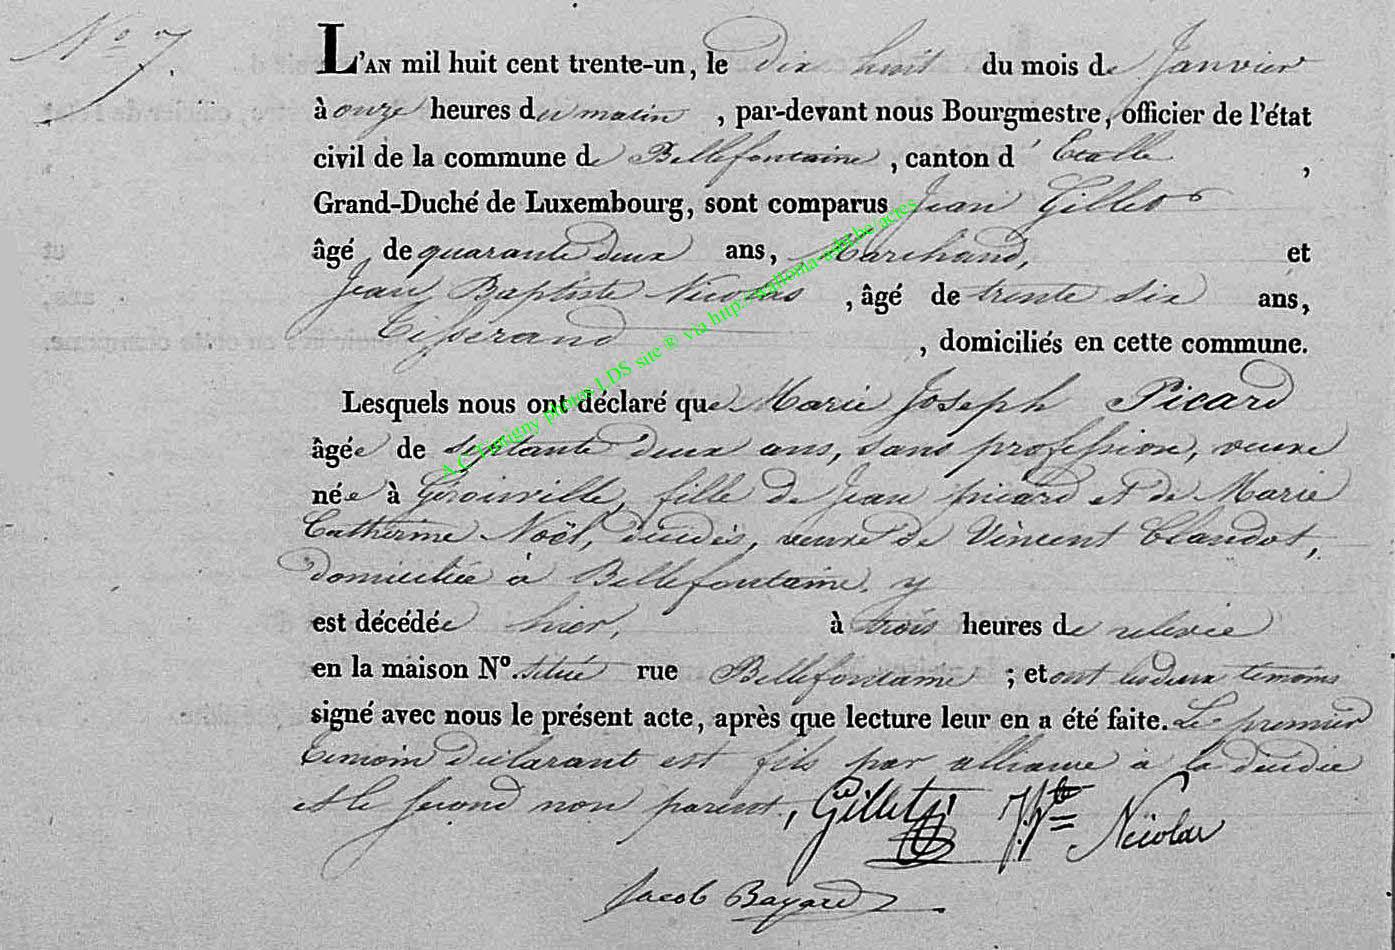 N° 7.
L'AN mil huit cent trente-un, le dix huit du mois de Janvier
à onze heures du matin, par-devant nous Bourgmestre, officier de l'état
civil de la commune de Bellefontaine, canton d'Etalle,
Grand-Duché de Luxembourg, sont comparus Jean Gillet
âgé de quarante deux ans, Marchand, et
Jean Baptiste Nicolas, âgé de trente six ans,
Tisserand, domiciliés en cette commune.
Lesquels nous ont déclaré que Marie Joseph Picard
âgée de septante deux ans, sans profession, veuve
née à Gérouville, fille de Jean picard et de Marie
Catherine Noël, décédés, veuve de Vincent Claudot,
domiciliée à Bellefontaine, y
est décédée hier, à trois heures de relevée
en la maison N°. située rue Bellefontaine; et ont les deux témoins
signé avec nous le présent acte, après que lecture leur en a été faite. Le premier
témoin déclarant est fils par alliance à la décédée
et le second non parent,
Gillet JBte Nicolas
Jacob Bayard
A.C. Tintigny photos LDS site ® via http://wallonia-asbl.be/actes